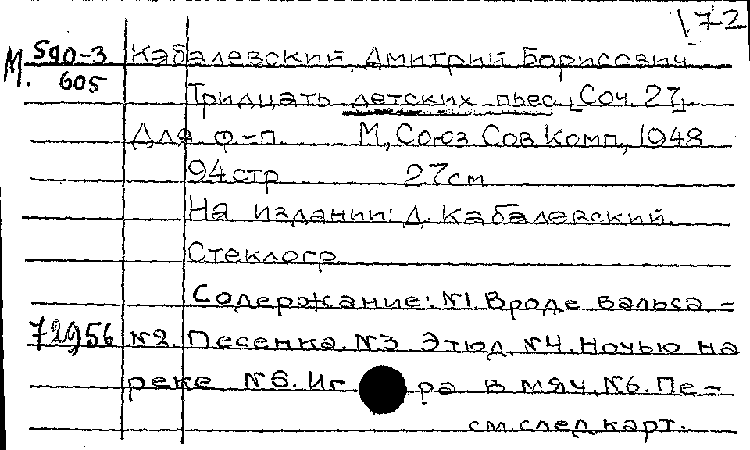 172
М. 590-3 Кабалевский, Дмитрий Борисович
605
Тридцать детских пьес [Соч. 27].
Для ф-п. М, Союз Сов Комп, 1948
94 стр 27 см
На издании: Д. Кабалевский.
Стеклогр
Содержание: №1. Вроде вальса -
72956 №2. Песенка. №3 Этюд. №4. Ночью на
реке №5. Иг ра в мяч. №6. Пе-
см. след. карт.